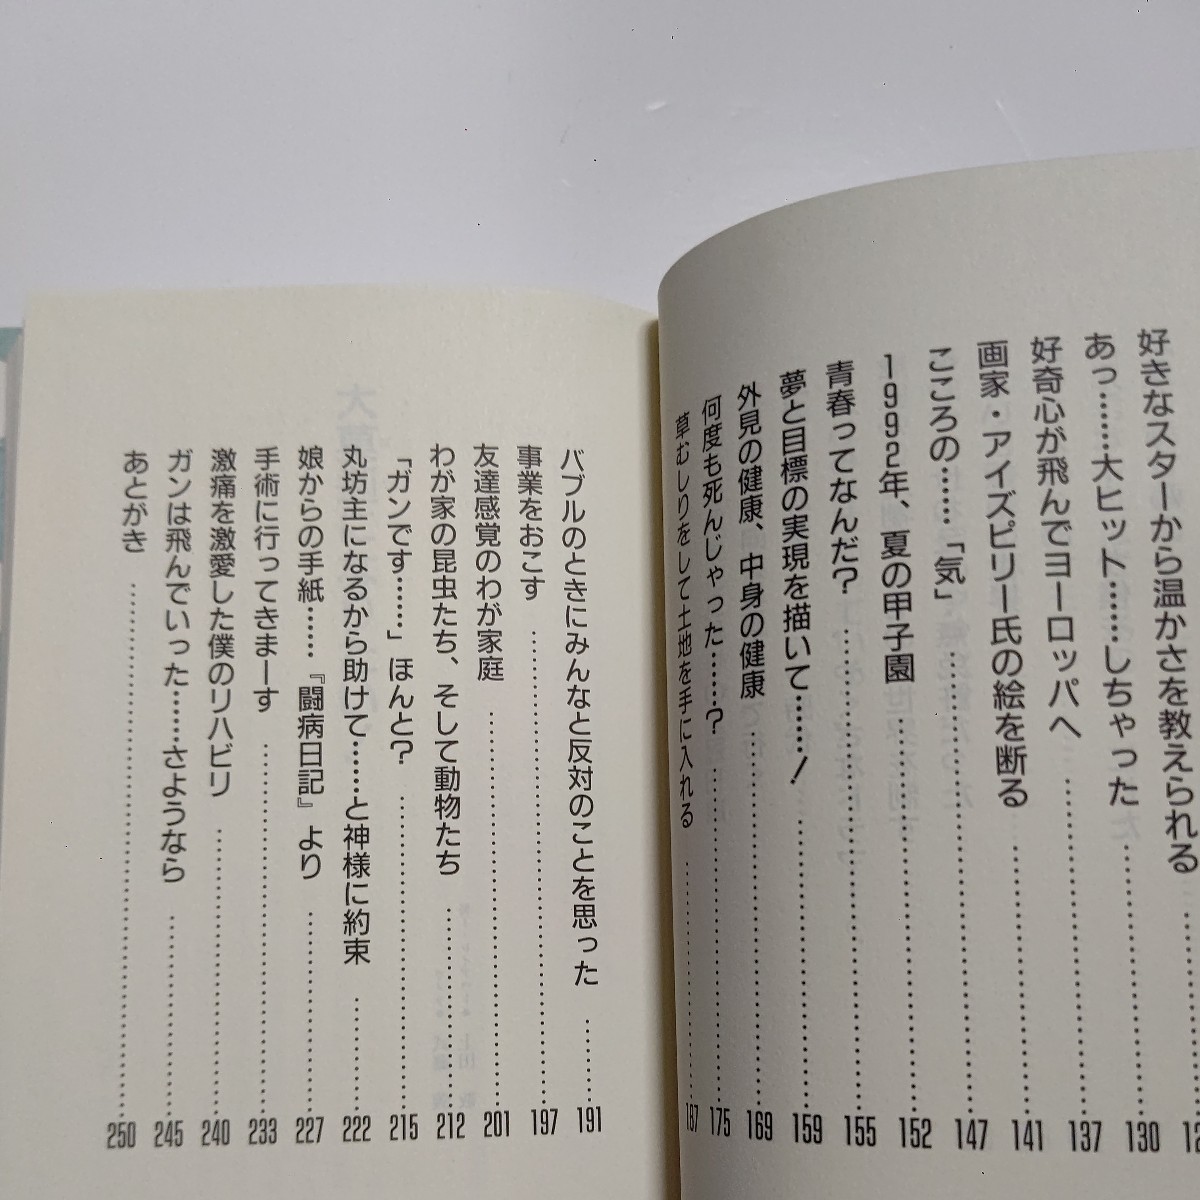 好きなスターから温かさを教えられる
あっ……大ヒット……しちゃった……130
好奇心が飛んでヨーロッパへ……137
画家・アイズピリー氏の絵を断る……141
こころの……「気」……147
1992年、夏の甲子園……152
青春ってなんだ？……155
夢と目標の実現を描いて……！……159
外見の健康、中身の健康……169
何度も死んじゃった……？……175
草むしりをして土地を手に入れる……187
バブルのときにみんなと反対のことを思った……191
事業をおこす……197
友達感覚のわが家庭……201
わが家の昆虫たち、そして動物たち……212
「ガンです……」ほんと？……215
丸坊主になるから助けて……と神様に約束……222
娘からの手紙……『闘病日記』より……227
手術に行ってきまーす……233
激痛を激愛した僕のリハビリ……240
ガンは飛んでいった……さようなら……245
あとがき……250